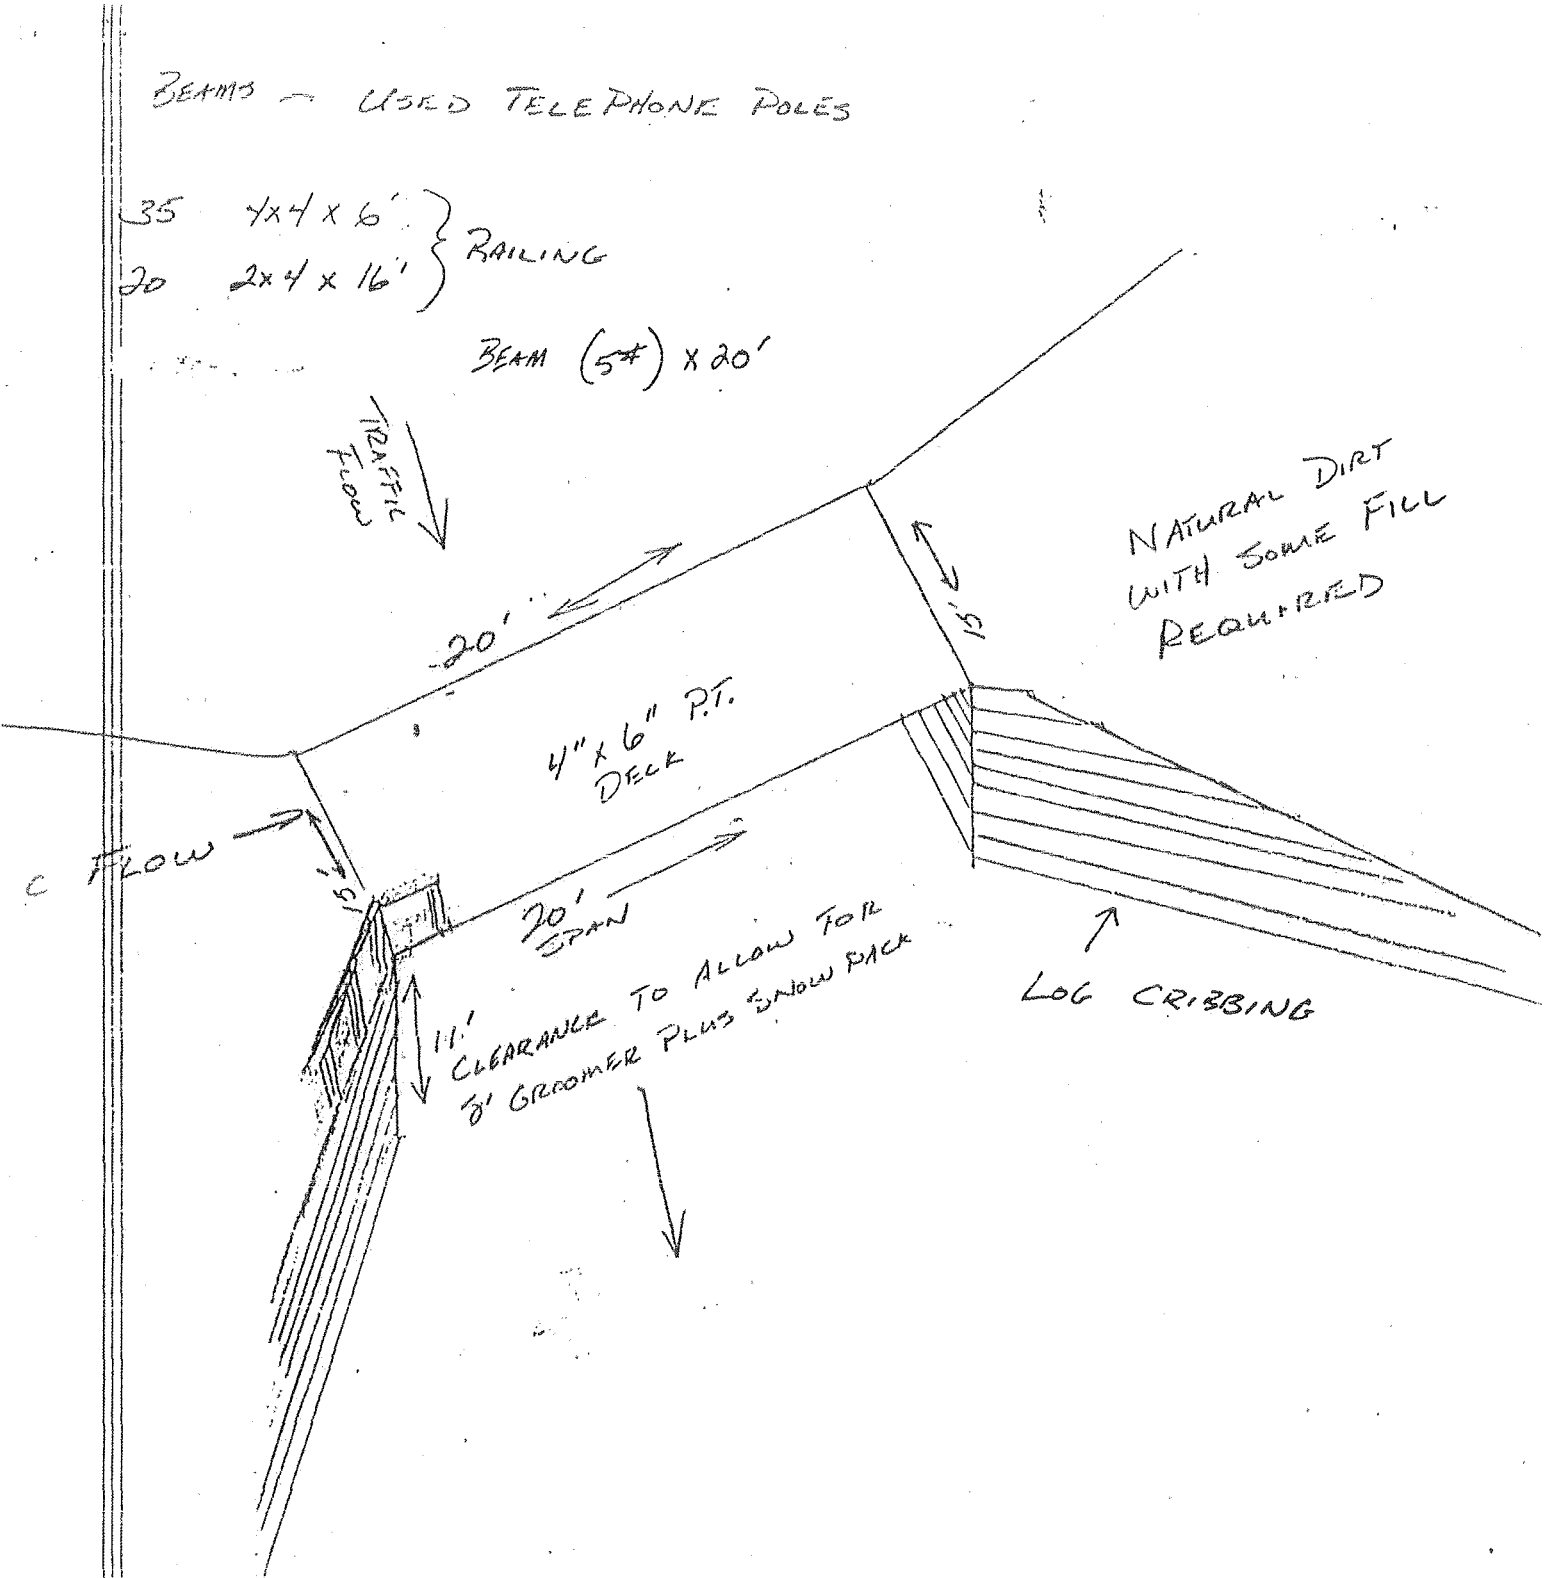 BEAMS – USED TELEPHONE POLES
35 4x4 x 6'
20 2x4 x 16'
} RAILING
BEAM (5#) x 20'
TRAFFIC
FLOW
NATURAL DIRT
WITH SOME FILL
REQUIRED
20'
15'
4" x 6" P.T.
DECK
C FLOW
15'
20'
SPAN
11'
CLEARANCE TO ALLOW FOR
GROOMER PLUS SNOW PACK
LOG CRIBBING